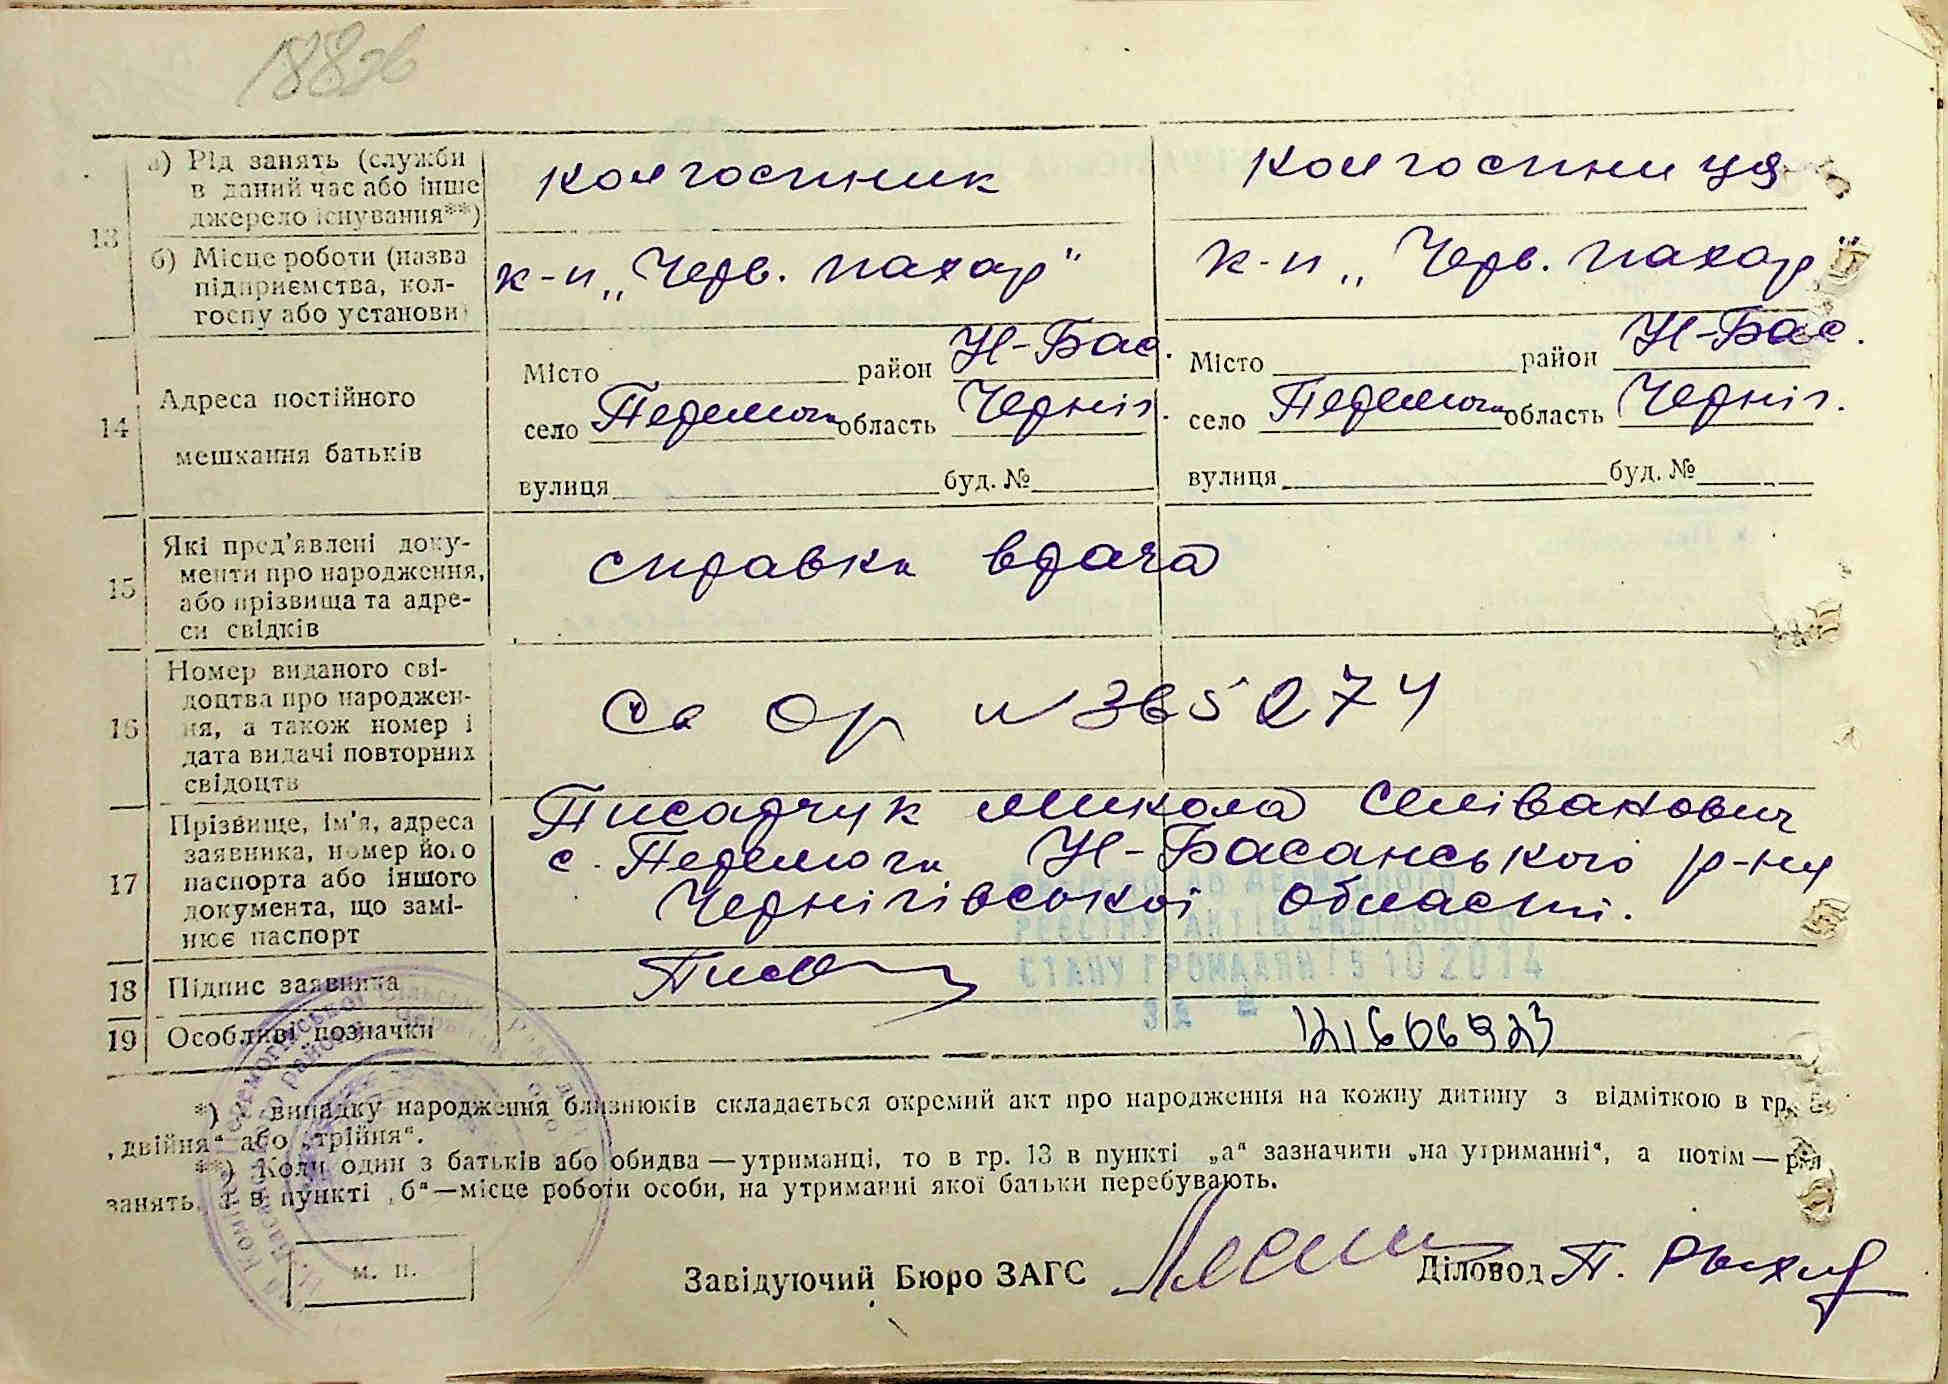 188зв
13 а) Рід занять (служби в даний час або інше джерело існування**)
колгоспник
колгоспниця
б) Місце роботи (назва підприємства, колгоспу або установи)
к-п „Черв. пахар"
к-п „Черв. пахар
14 Адреса постійного мешкання батьків
Місто район Н-Бас.
Місто район Н-Бас.
село Перемога область Черніг.
село Перемога область Черніг.
вулиця буд. №
вулиця буд. №
15 Які пред'явлені документи про народження, або прізвища та адреси свідків
справка врача
16 Номер виданого свідоцтва про народження, а також номер і дата видачі повторних свідоцтв
Ор № 365274
17 Прізвище, ім'я, адреса заявника, номер його паспорта або іншого документа, що замінює паспорт
Писарчук Микола
с. Перемога Н-Басанського р-ну
Чернігівської області.
ДЕРЖАВНОГО
РЕЄСТРУ АКТІВ ЦИВІЛЬНОГО
СТАНУ ГРОМАДЯН 15 10 2014
ЗА №
18 Підпис заявника
19 Особливі позначки
121606923
*) У випадку народження близнюків складається окремий акт про народження на кожну дитину з відміткою в гр.
„двійня" або „трійня".
**) Коли один з батьків або обидва — утриманці, то в гр. 13 в пункті „а" зазначити „на утриманні", а потім — рід
занять, а в пункті „б"—місце роботи особи, на утриманні якої батьки перебувають.
м. п.
Завідуючий Бюро ЗАГС
Діловод П.